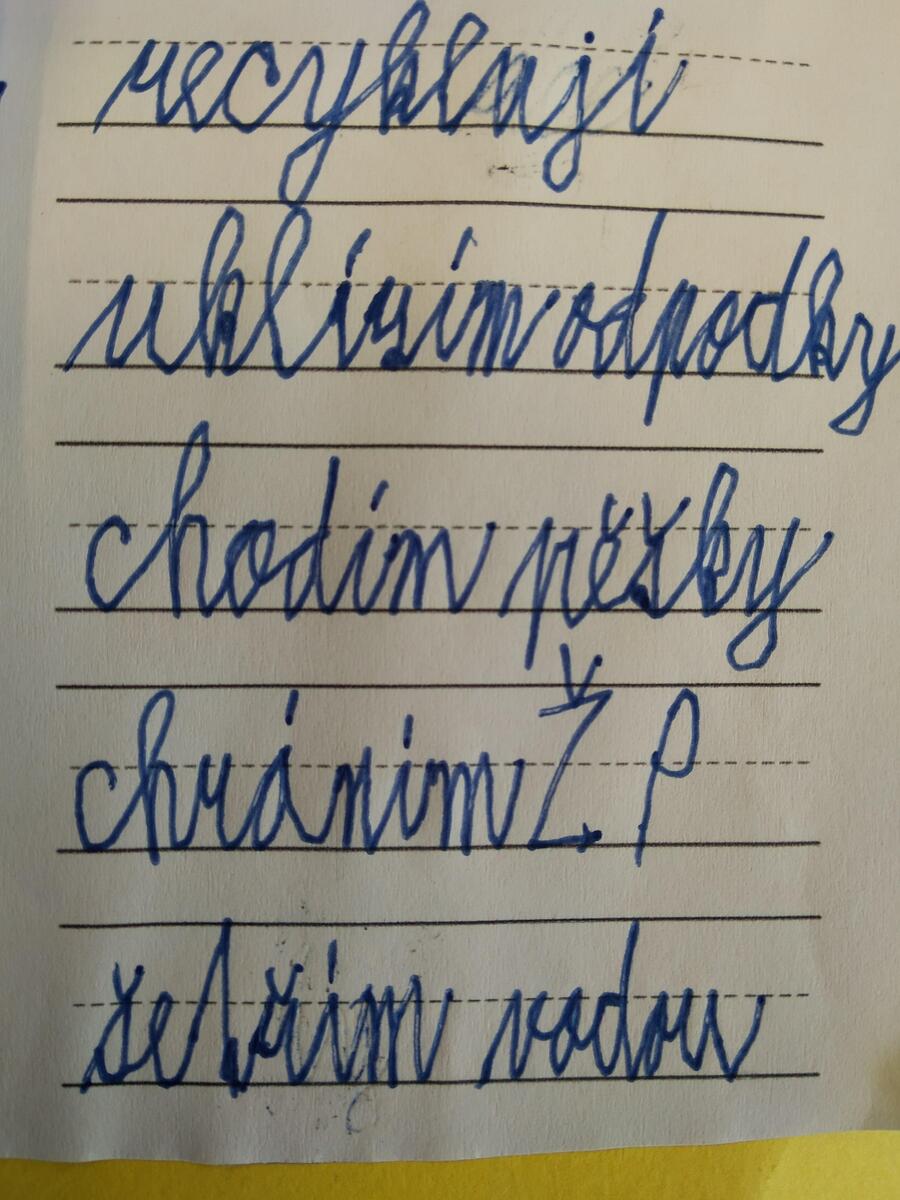 recykluji
uklízím odpodky
chodím pěžky
chráním Ž. P
šetřím vodou